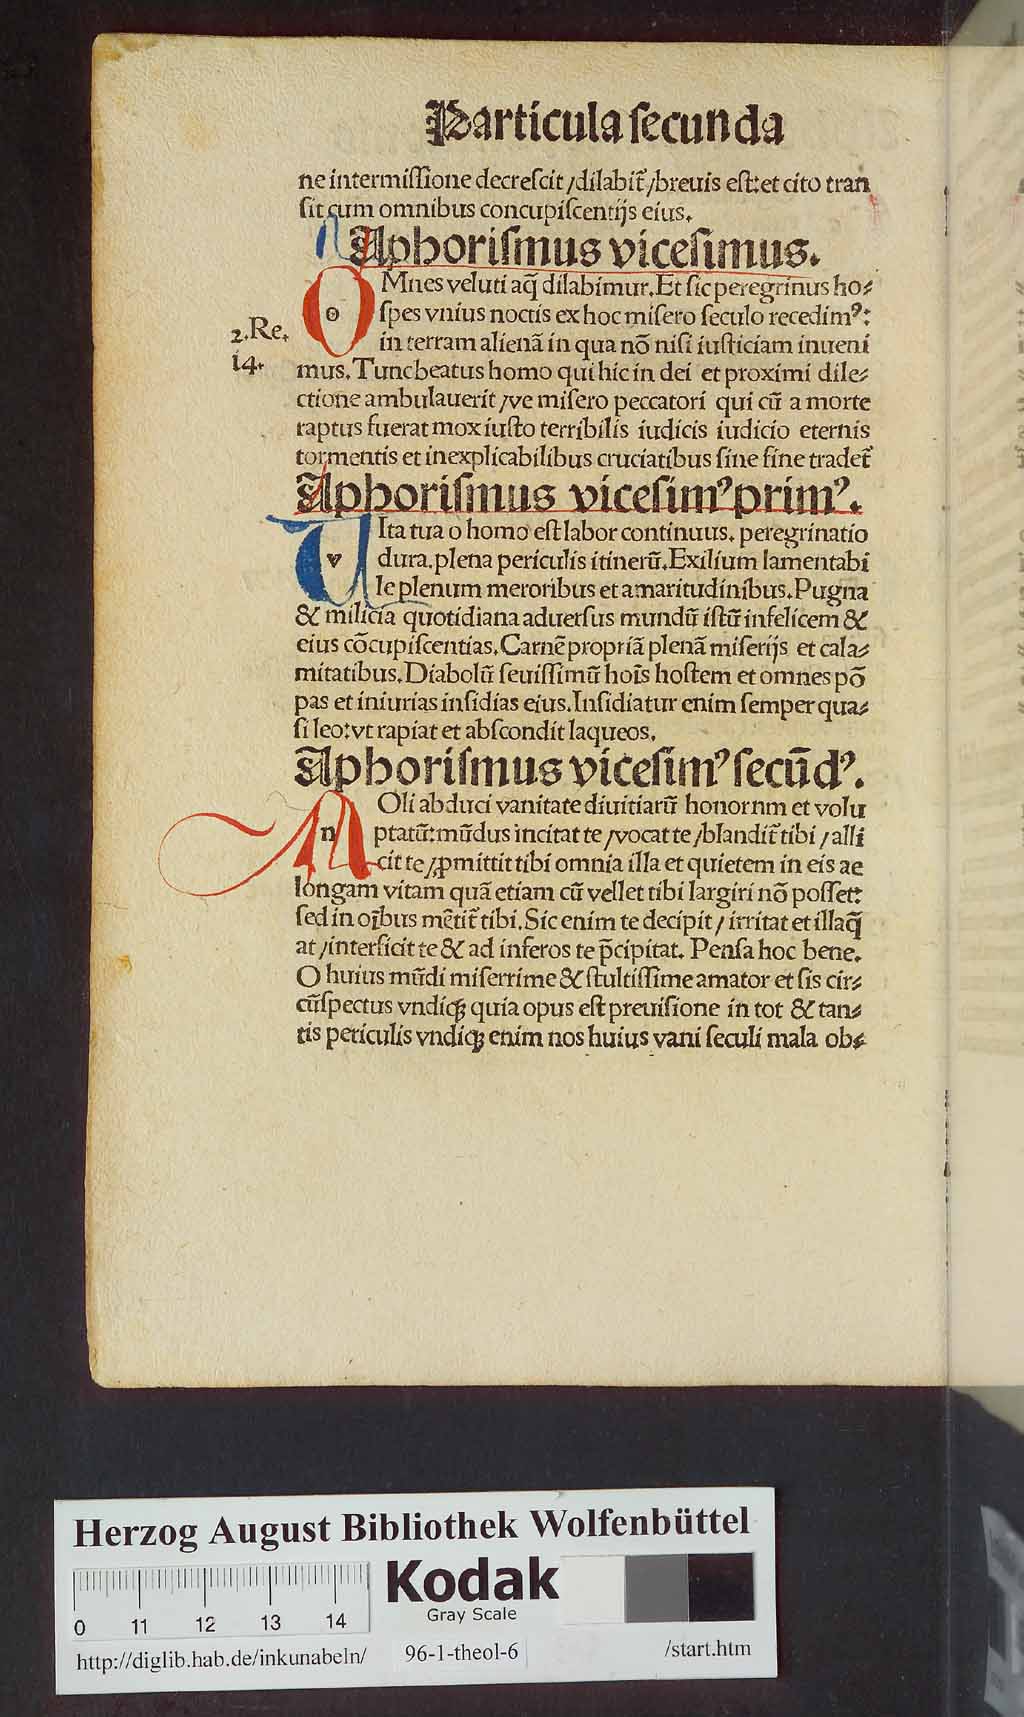 Particula ſecunda
ne intermiſſione decreſcit /dilabit᷑ /breuis eſt: et cito tran
ſit cum omnibus concupiſcentijs eius.
Aphoriſmus viceſimus.
OMnes veluti aq̃ dilabimur. Et ſic peregrinus ho⸗
ſpes vnius noctis ex hoc miſero ſeculo recedimꝰ:
2. Re.
14.
in terram alienā in qua nō niſi iuſticiam inueni
mus. Tunc beatus homo qui hic in dei et proximi dile⸗
ctione ambulauerit /ve miſero peccatori qui cū a morte
raptus fuerat mox iuſto terribilis iudicis iudicio eternis
tormentis et inexplicabilibus cruciatibus ſine fine tradet᷑
Aphoriſmus viceſimꝰ primꝰ.
VIta tua o homo eſt labor continuus. peregrinatio
dura. plena periculis itinerū. Exilium lamentabi
le plenum meroribus et amaritudinibus. Pugna
& milicia quotidiana aduerſus mundū iſtū infelicem &
eius cōcupiſcentias. Carnē propriā plenā miſerijs et cala⸗
mitatibus. Diabolū ſeuiſſimū hoīs hoſtem et omnes pō
pas et iniurias inſidias eius. Inſidiatur enim ſemper qua⸗
ſi leo: vt rapiat et abſcondit laqueos.
Aphoriſmus viceſimꝰ ſecūdꝰ.
NOli abduci vanitate diuitiarū honornm et volu
ptatū: mūdus incitat te /vocat te /blandit᷑ tibi /alli
cit te /ꝓmittit tibi omnia illa et quietem in eis ac
longam vitam quā etiam cū vellet tibi largiri nō poſſet:
ſed in oībus mētit᷑ tibi. Sic enim te decipit /irritat et illaq̃
at /interficit te & ad inferos te p̄cipitat. Penſa hoc bene.
O huius mūdi miſerrime & ſtultiſſime amator et ſis cir⸗
cūſpectus vndiqꝫ quia opus eſt preuiſione in tot & tan⸗
tis periculis vndiqꝫ enim nos huius vani ſeculi mala ob⸗
Herzog August Bibliothek Wolfenbüttel
Kodak
Gray Scale
0 11 12 13 14
http://diglib.hab.de/inkunabeln/ 96-1-theol-6 /start.htm